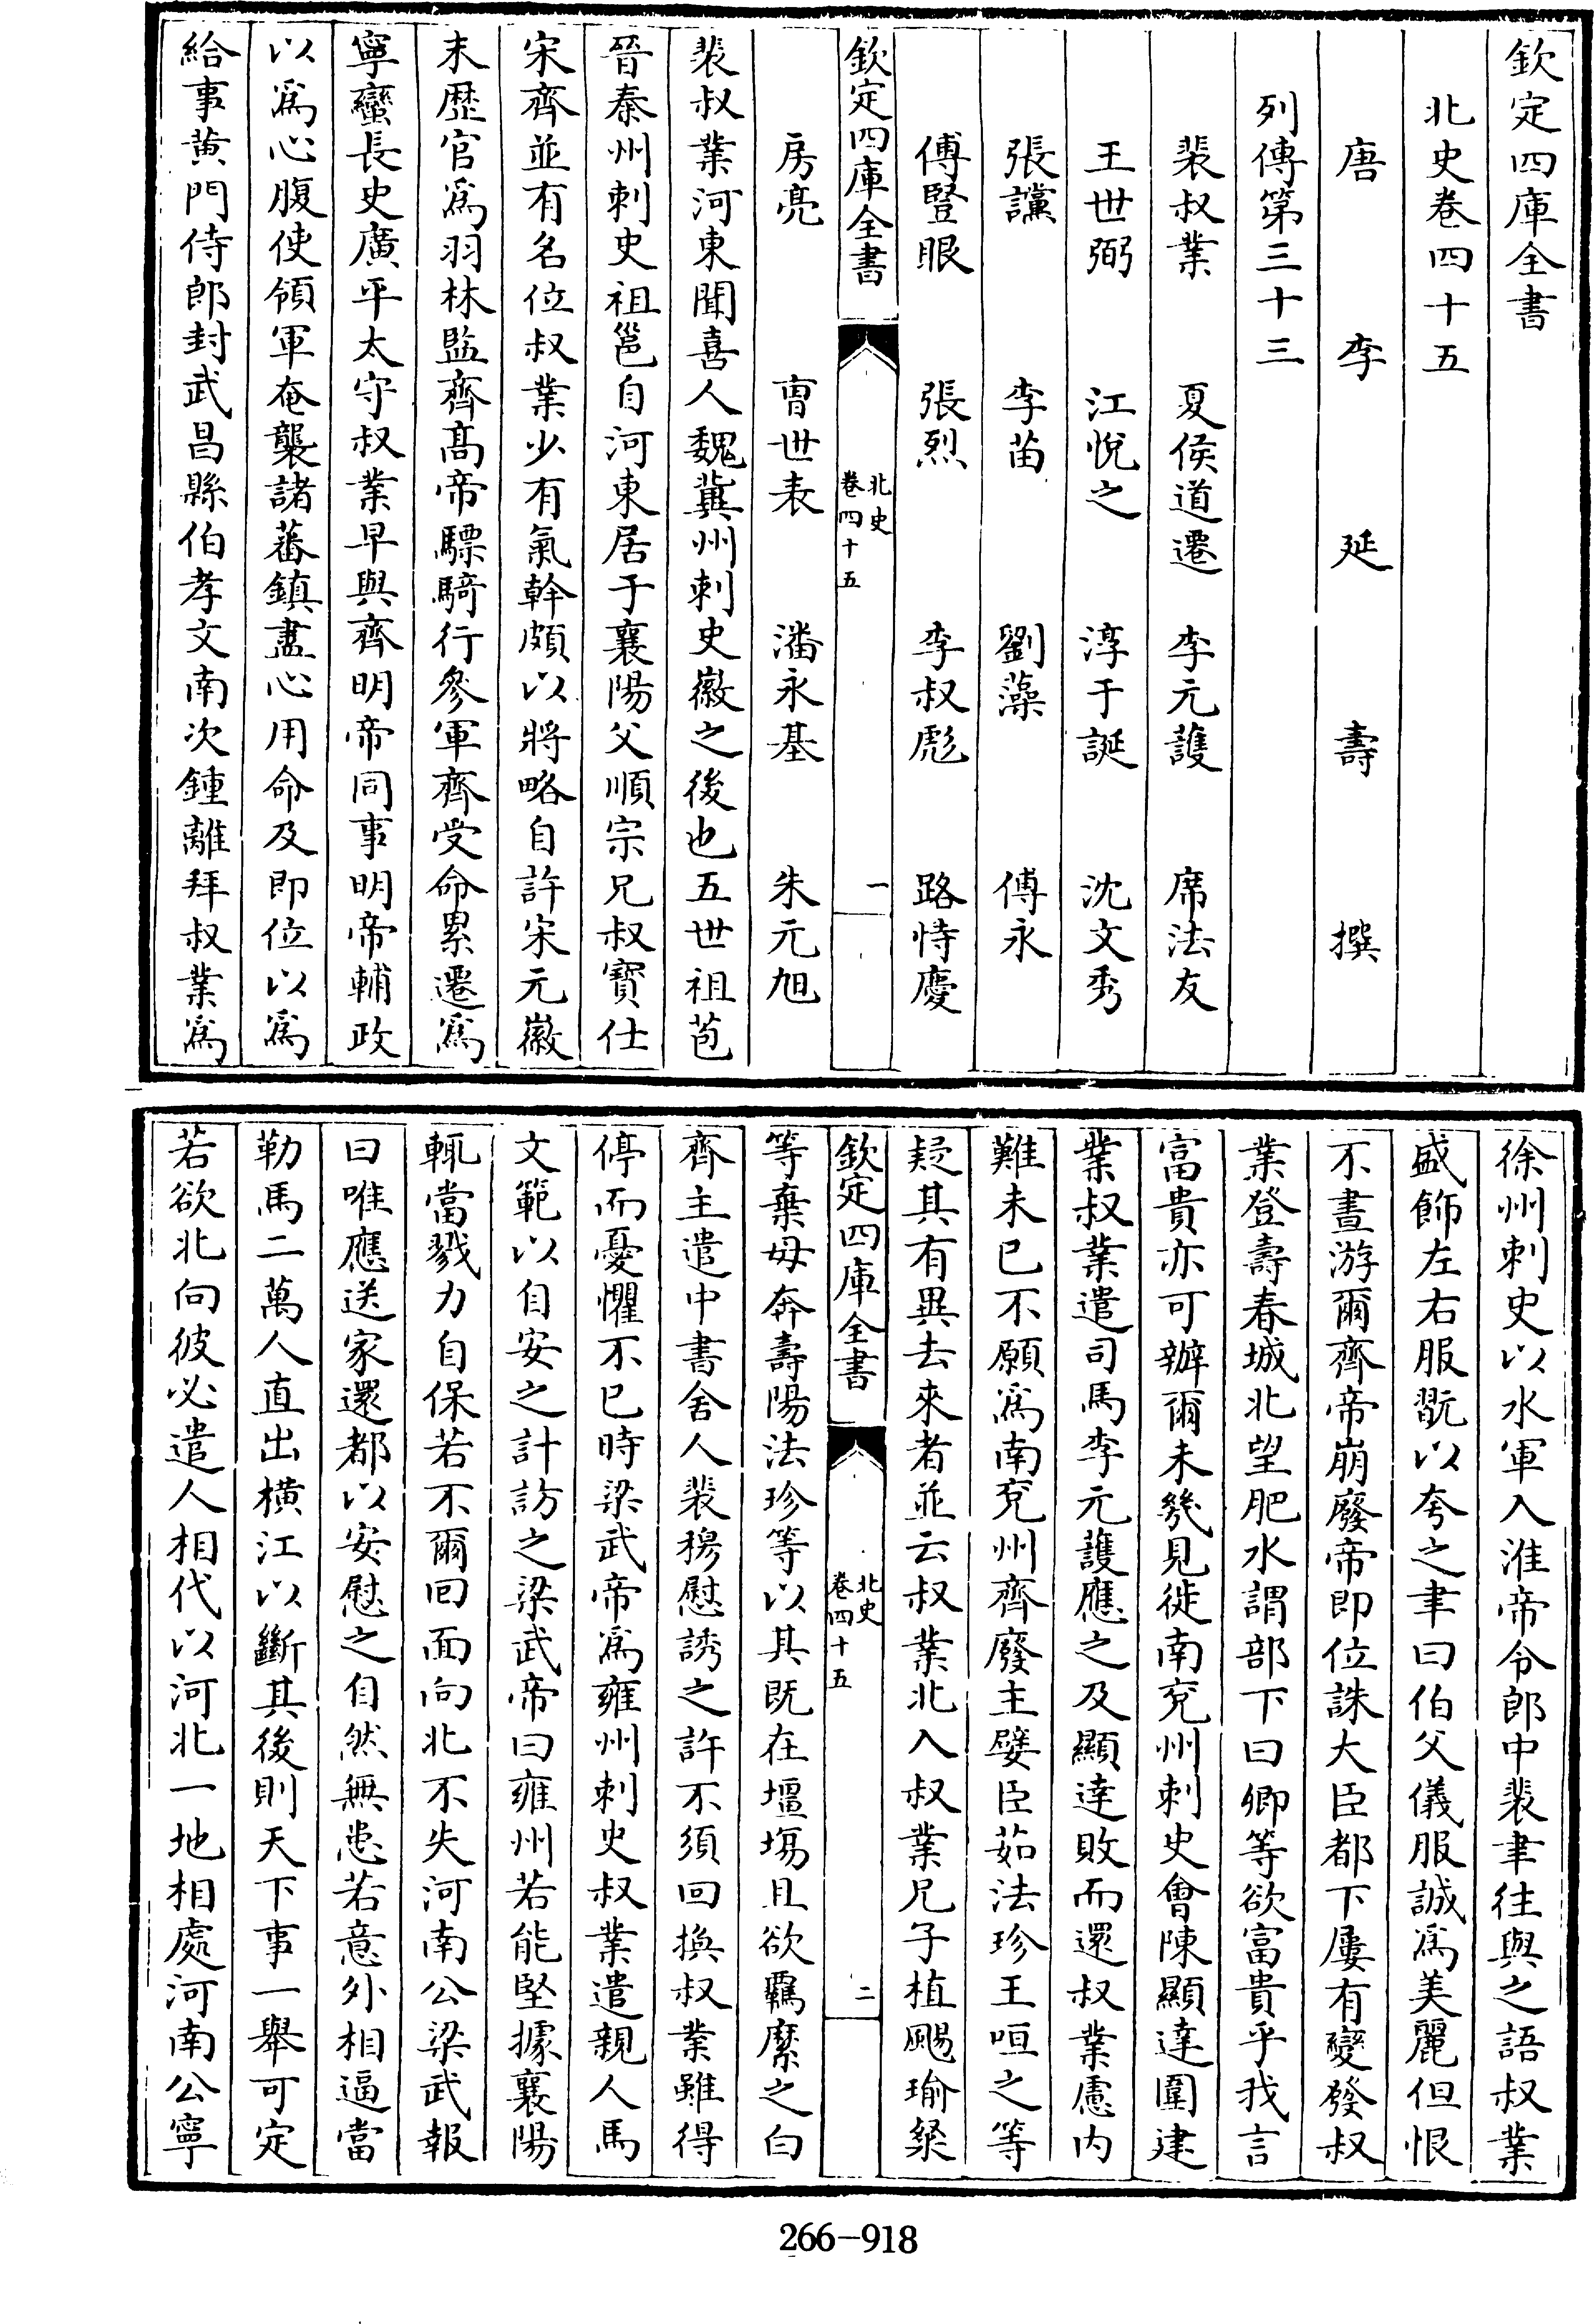 欽定四庫全書
北史卷四十五
唐李延壽撰
列傳第三十三
裴叔業 夏侯道遷 李元護 席法友
王世弼 江悅之 淳于誕 沈文秀
張讜 李苗 劉藻 傅永
傅豎眼 張烈 李叔彪 路恃慶
欽定四庫全書 北史卷四十五 一
房亮 曹世表 潘永基 朱元旭
裴叔業河東聞喜人魏冀州刺史徽之後也五世祖苞
晉秦州刺史祖邕自河東居于襄陽父順宗兄叔寶仕
宋齊並有名位叔業少有氣幹頗以將略自許宋元徽
末歷官爲羽林監齊髙帝驃騎行參軍齊受命累遷爲
寧蠻長史廣平太守叔業早與齊明帝同事明帝輔政
以爲心腹使領軍奄襲諸蕃鎮盡心用命及即位以爲
給事黄門侍郎封武昌縣伯孝文南次鍾離拜叔業爲
徐州刺史以水軍入淮帝令郎中裴聿往與之語叔業
盛飾左右服翫以夸之聿曰伯父儀服誠爲美麗但恨
不晝游爾齊帝崩廢帝即位誅大臣都下屢有變發叔
業登壽春城北望肥水謂部下曰卿等欲富貴乎我言
富貴亦可辦爾未幾見徙南兗州刺史會陳顯達圍建
業叔業遣司馬李元護應之及顯達敗而還叔業慮内
難未已不願爲南兗州齊廢主嬖臣茹法珍王咺之等
疑其有異去來者並云叔業北入叔業兄子植颺瑜粲
欽定四庫全書 北史卷四十五 二
等棄母奔壽陽法珍等以其既在壃塲且欲羈縻之白
齊主遣中書舍人裴穆慰誘之許不須回換叔業雖得
停而憂懼不已時梁武帝爲雍州刺史叔業遣親人馬
文範以自安之計訪之梁武帝曰雍州若能堅據襄陽
輒當戮力自保若不爾回面向北不失河南公梁武報
曰唯應送家還都以安慰之自然無患若意外相逼當
勒馬二萬人直出橫江以斷其後則天下事一舉可定
若欲北向彼必遣人相代以河北一地相處河南公寧
266-918